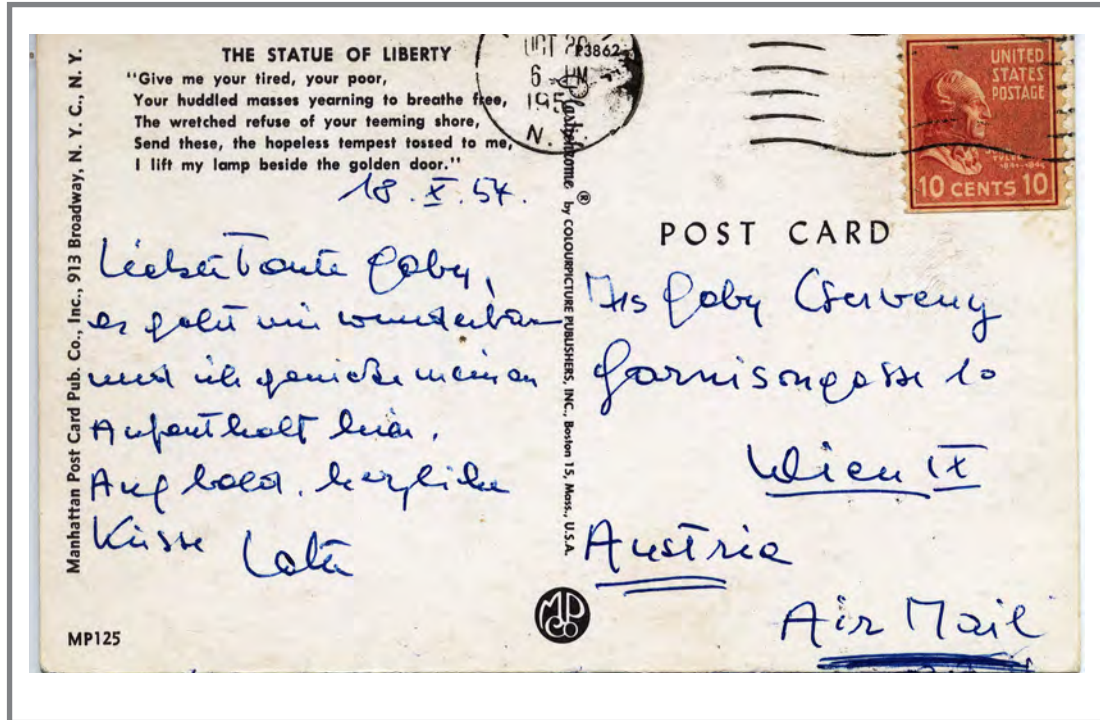 THE STATUE OF LIBERTY
"Give me your tired, your poor,
Your huddled masses yearning to breathe free,
The wretched refuse of your teeming shore,
Send these, the hopeless tempest tossed to me,
I lift my lamp beside the golden door."
18. X. 54.
Liebe Tante Gaby,
es geht mir wunderbar
und ich genieße meinen
Aufenthalt hier.
Auf bald, herzliche
Küsse
MP125
Manhattan Post Card Pub. Co., Inc., 913 Broadway, N. Y. C., N. Y.
Plastichrome ® by COLOURPICTURE PUBLISHERS, INC., Boston 15, Mass., U.S.A.
P3862
OCT
6 PM
N.
MP
CO
UNITED
STATES
POSTAGE
10 CENTS 10
POST CARD
Mrs Gaby Cserveny
Garnisongasse 10
Wien IX
Austria
Air Mail